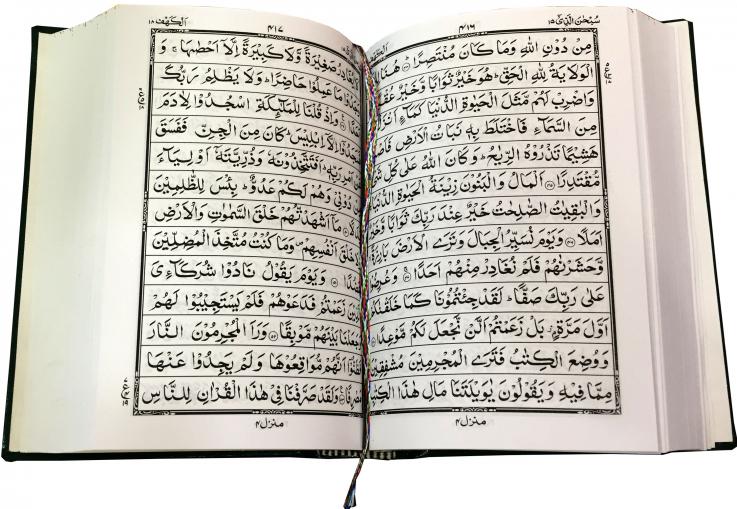 سُبْحٰنَ الَّذِیْۤ ۱۵
۴۱۶
مِنْ دُوْنِ اللّٰهِ وَمَا كَانَ مُنْتَصِرًا
الْوَلَايَةُ لِلّٰهِ الْحَقِّ ؕ هُوَ خَيْرٌ ثَوَابًا وَّخَيْرٌ
وَاضْرِبْ لَهُمْ مَّثَلَ الْحَيٰوةِ الدُّنْيَا كَمَآءٍ
مِنَ السَّمَآءِ فَاخْتَلَطَ بِهٖ نَبَاتُ الْاَرْضِ
هَشِيْمًا تَذْرُوْهُ الرِّيٰحُ ؕ وَكَانَ اللّٰهُ عَلٰى كُلِّ
مُّقْتَدِرًا ۴۵ اَلْمَالُ وَالْبَنُوْنَ زِيْنَةُ الْحَيٰوةِ
وَالْبٰقِيٰتُ الصّٰلِحٰتُ خَيْرٌ عِنْدَ رَبِّكَ ثَوَابًا وَّخَيْرٌ
اَمَلًا ۴۶ وَيَوْمَ نُسَيِّرُ الْجِبَالَ وَتَرَى الْاَرْضَ
وَّحَشَرْنٰهُمْ فَلَمْ نُغَادِرْ مِنْهُمْ اَحَدًا ۴۷
عَلٰى رَبِّكَ صَفًّا ؕ لَقَدْ جِئْتُمُوْنَا كَمَا
اَوَّلَ مَرَّةٍۭ ز بَلْ زَعَمْتُمْ اَلَّنْ نَّجْعَلَ لَكُمْ مَّوْعِدًا
وَوُضِعَ الْكِتٰبُ فَتَرَى الْمُجْرِمِيْنَ مُشْفِقِيْنَ
مِمَّا فِيْهِ وَيَقُوْلُوْنَ يٰوَيْلَتَنَا مَالِ هٰذَا
منزل ۴
۴۱۷
اَلْكَهْف ۱۸
صَغِيْرَةً وَّلَا كَبِيْرَةً اِلَّاۤ اَحْصٰىهَا ۚ وَ
مَا عَمِلُوْا حَاضِرًا ؕ وَلَا يَظْلِمُ رَبُّكَ
وَاِذْ قُلْنَا لِلْمَلٰٓئِكَةِ اسْجُدُوْا لِاٰدَمَ
اِلَّاۤ اِبْلِيْسَ ؕ كَانَ مِنَ الْجِنِّ فَفَسَقَ
اَمْرِ رَبِّهٖ ؕ اَفَتَتَّخِذُوْنَهٗ وَذُرِّيَّتَهٗۤ اَوْلِيَآءَ
دُوْنِىْ وَهُمْ لَكُمْ عَدُوٌّ ؕ بِئْسَ لِلظّٰلِمِيْنَ
مَاۤ اَشْهَدْتُّهُمْ خَلْقَ السَّمٰوٰتِ وَالْاَرْضِ
خَلْقَ اَنْفُسِهِمْ ۪ وَمَا كُنْتُ مُتَّخِذَ الْمُضِلِّيْنَ
وَيَوْمَ يَقُوْلُ نَادُوْا شُرَكَآءِىَ
زَعَمْتُمْ فَدَعَوْهُمْ فَلَمْ يَسْتَجِيْبُوْا لَهُمْ
وَجَعَلْنَا بَيْنَهُمْ مَّوْبِقًا ۵۲ وَرَاَ الْمُجْرِمُوْنَ النَّارَ
فَظَنُّوْۤا اَنَّهُمْ مُّوَاقِعُوْهَا وَلَمْ يَجِدُوْا عَنْهَا
وَلَقَدْ صَرَّفْنَا فِىْ هٰذَا الْقُرْاٰنِ لِلنَّاسِ
منزل ۴